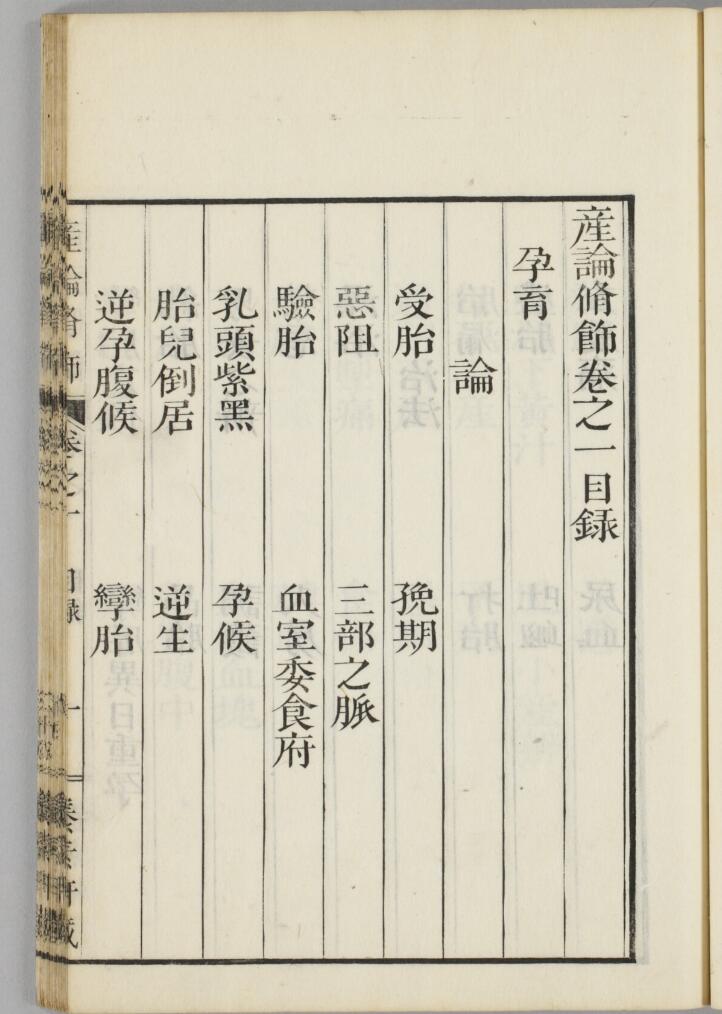 産論脩飾卷之一目録
孕育
論
受胎　娩期
惡阻　三部之脈
驗胎　血室委食府
乳頭紫黑　孕候
胎兒倒居　逆生
逆孕腹候　孿胎
産論脩飾　卷之一　目録　一